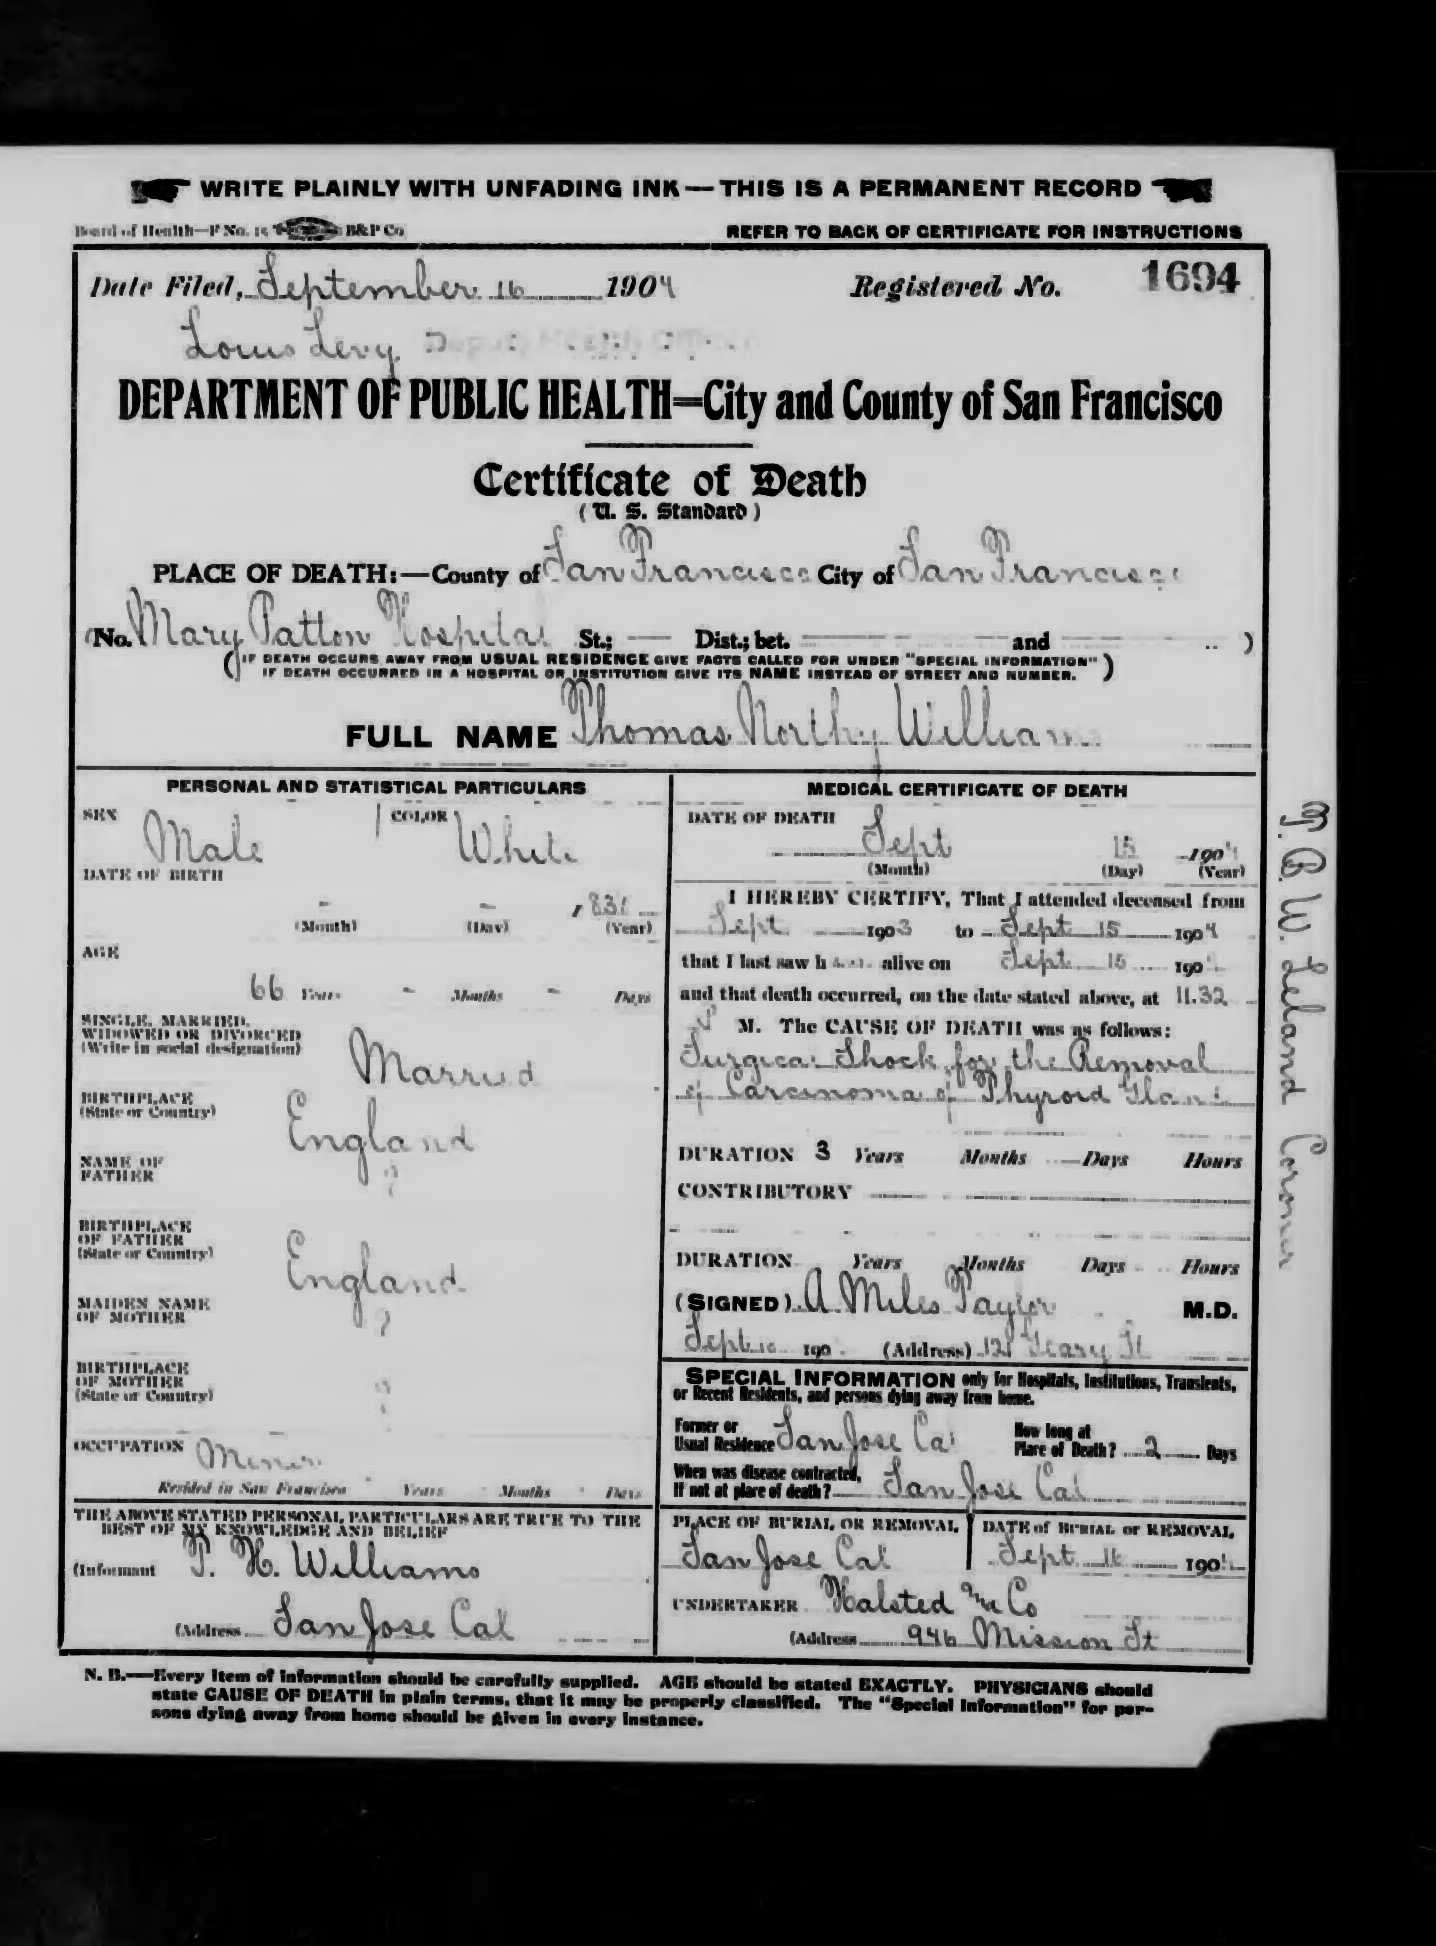 WRITE PLAINLY WITH UNFADING INK — THIS IS A PERMANENT RECORD
Board of Health—F No. 15 B&P Co
REFER TO BACK OF CERTIFICATE FOR INSTRUCTIONS
Date Filed, September 16 1904 Registered No. 1694
Louis Levy
DEPARTMENT OF PUBLIC HEALTH=City and County of San Francisco
Certificate of Death
(U. S. Standard)
PLACE OF DEATH:—County of San Francisco City of San Francisco
(No. Mary Patton Hospital St.; — Dist.; bet. — and )
(IF DEATH OCCURS AWAY FROM USUAL RESIDENCE GIVE FACTS CALLED FOR UNDER "SPECIAL INFORMATION"
IF DEATH OCCURRED IN A HOSPITAL OR INSTITUTION GIVE ITS NAME INSTEAD OF STREET AND NUMBER.)
FULL NAME Thomas Northy Williams
PERSONAL AND STATISTICAL PARTICULARS
SEX Male COLOR White
DATE OF BIRTH
- - , 83
(Month) (Day) (Year)
AGE
66 Years - Months - Days
SINGLE, MARRIED,
WIDOWED OR DIVORCED
(Write in social designation) Married
BIRTHPLACE
(State or Country) England
NAME OF
FATHER ?
BIRTHPLACE
OF FATHER
(State or Country) England
MAIDEN NAME
OF MOTHER ?
BIRTHPLACE
OF MOTHER
(State or Country) ?
OCCUPATION Miner
Resided in San Francisco Years Months Days
THE ABOVE STATED PERSONAL PARTICULARS ARE TRUE TO THE
BEST OF MY KNOWLEDGE AND BELIEF
(Informant T. H. Williams
(Address San Jose Cal
MEDICAL CERTIFICATE OF DEATH
DATE OF DEATH
Sept 15 1904
(Month) (Day) (Year)
I HEREBY CERTIFY, That I attended deceased from
Sept 1903 to Sept 15 1904
that I last saw h alive on Sept 15 190
and that death occurred, on the date stated above, at 11.32
P M. The CAUSE OF DEATH was as follows:
Surgical Shock for the Removal
of Carcinoma of Thyroid Gland
DURATION 3 Years Months Days Hours
CONTRIBUTORY
DURATION Years Months Days Hours
(SIGNED) A Miles Taylor M.D.
Sept 190 (Address) 121 Geary St
SPECIAL INFORMATION only for Hospitals, Institutions, Transients,
or Recent Residents, and persons dying away from home.
Former or
Usual Residence San Jose Cal
How long at
Place of Death? 2 Days
When was disease contracted,
If not at place of death? San Jose Cal
PLACE OF BURIAL OR REMOVAL
San Jose Cal
DATE of BURIAL or REMOVAL
Sept 16 190
UNDERTAKER Halsted & Co
(Address 946 Mission St
N. B.—Every item of information should be carefully supplied. AGE should be stated EXACTLY. PHYSICIANS should
state CAUSE OF DEATH in plain terms, that it may be properly classified. The "Special Information" for per-
sons dying away from home should be given in every instance.
T. B. W. Leland Coroner